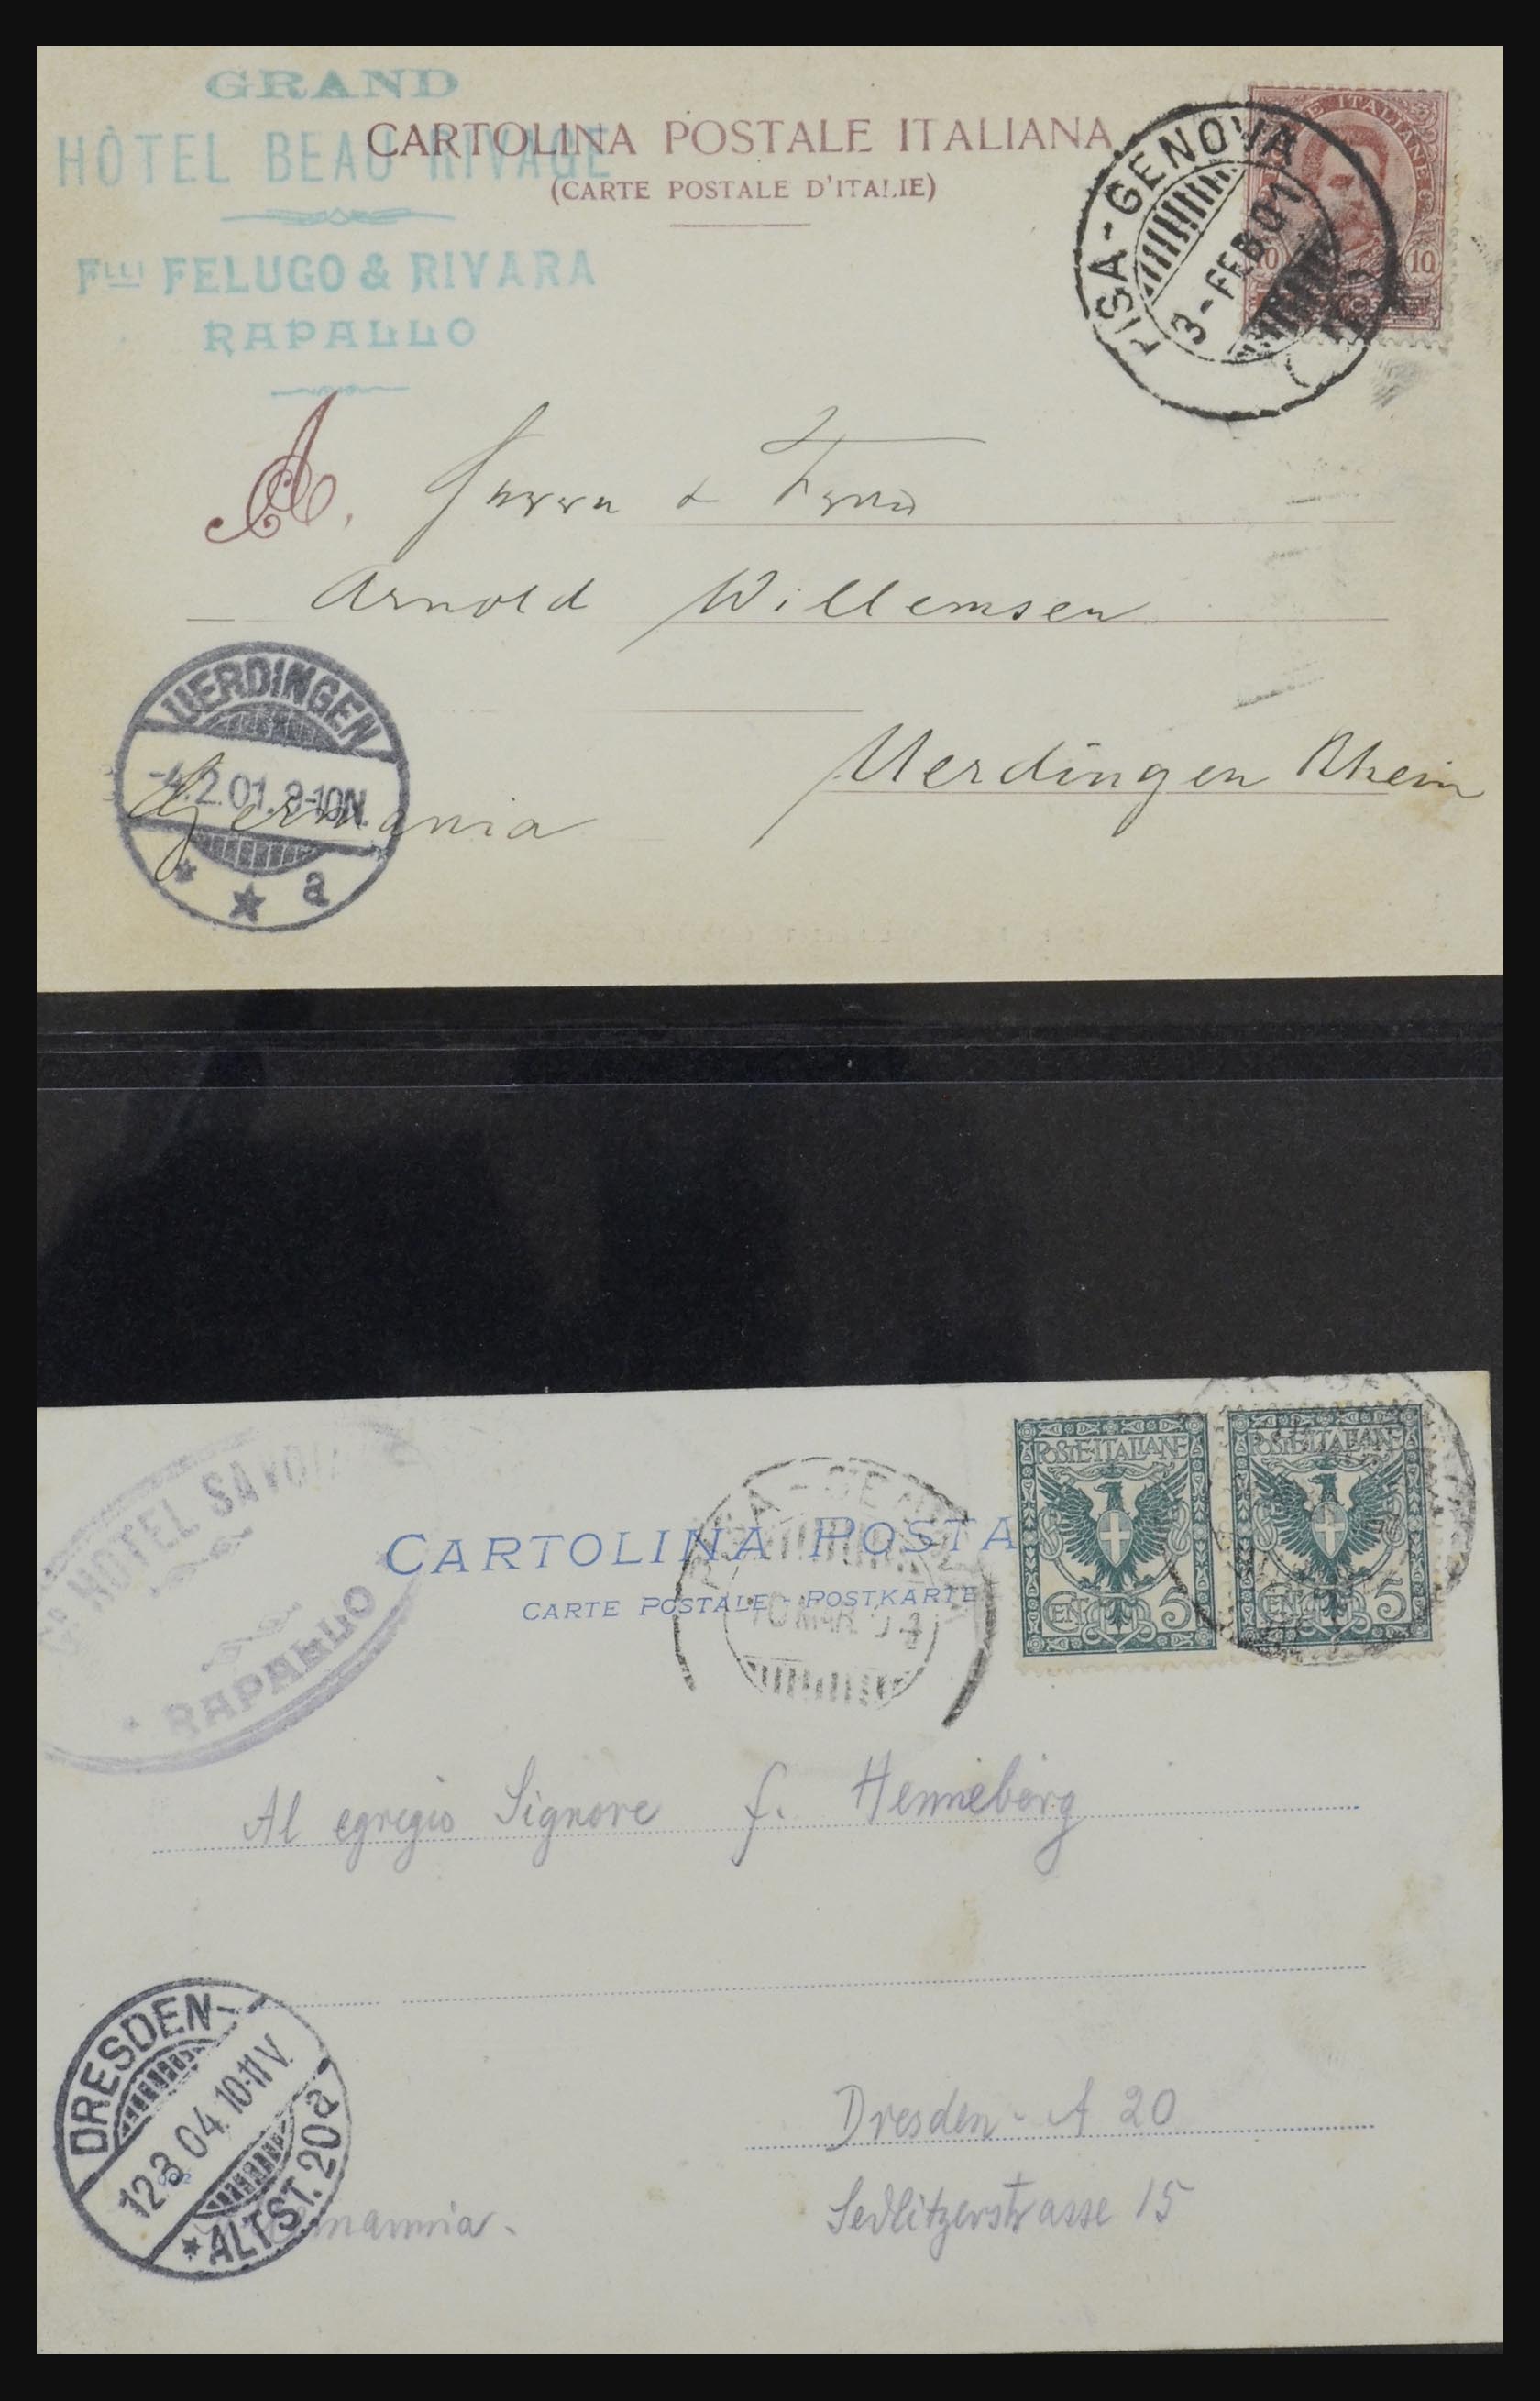 GRAND
HÔTEL BEAU RIVAGE
Flli FELUGO & RIVARA
RAPALLO
CARTOLINA POSTALE ITALIANA
(CARTE POSTALE D'ITALIE)
E ITALIANE
10 10
PISA-GENOVA
3-FEB 01
A. Herrn & Frau
Arnold Willemsen
Uerdingen Rhein
Germania
UERDINGEN
-4.2.01. 9-10N.
* * a
Gd HOTEL SAVOIA
RAPALLO
CARTOLINA POSTA
CARTE POSTALE - POSTKARTE
PISA-GENOVA
10 MAR 04
POSTE·ITALIANE
CENT 5
POSTE·ITALIANE
CENT 5
Al egregio Signore f. Henneberg
Dresden - A 20
Sedlitzerstrasse 15
DRESDEN-
12 3 04. 10-11V.
* ALTST. 20 a